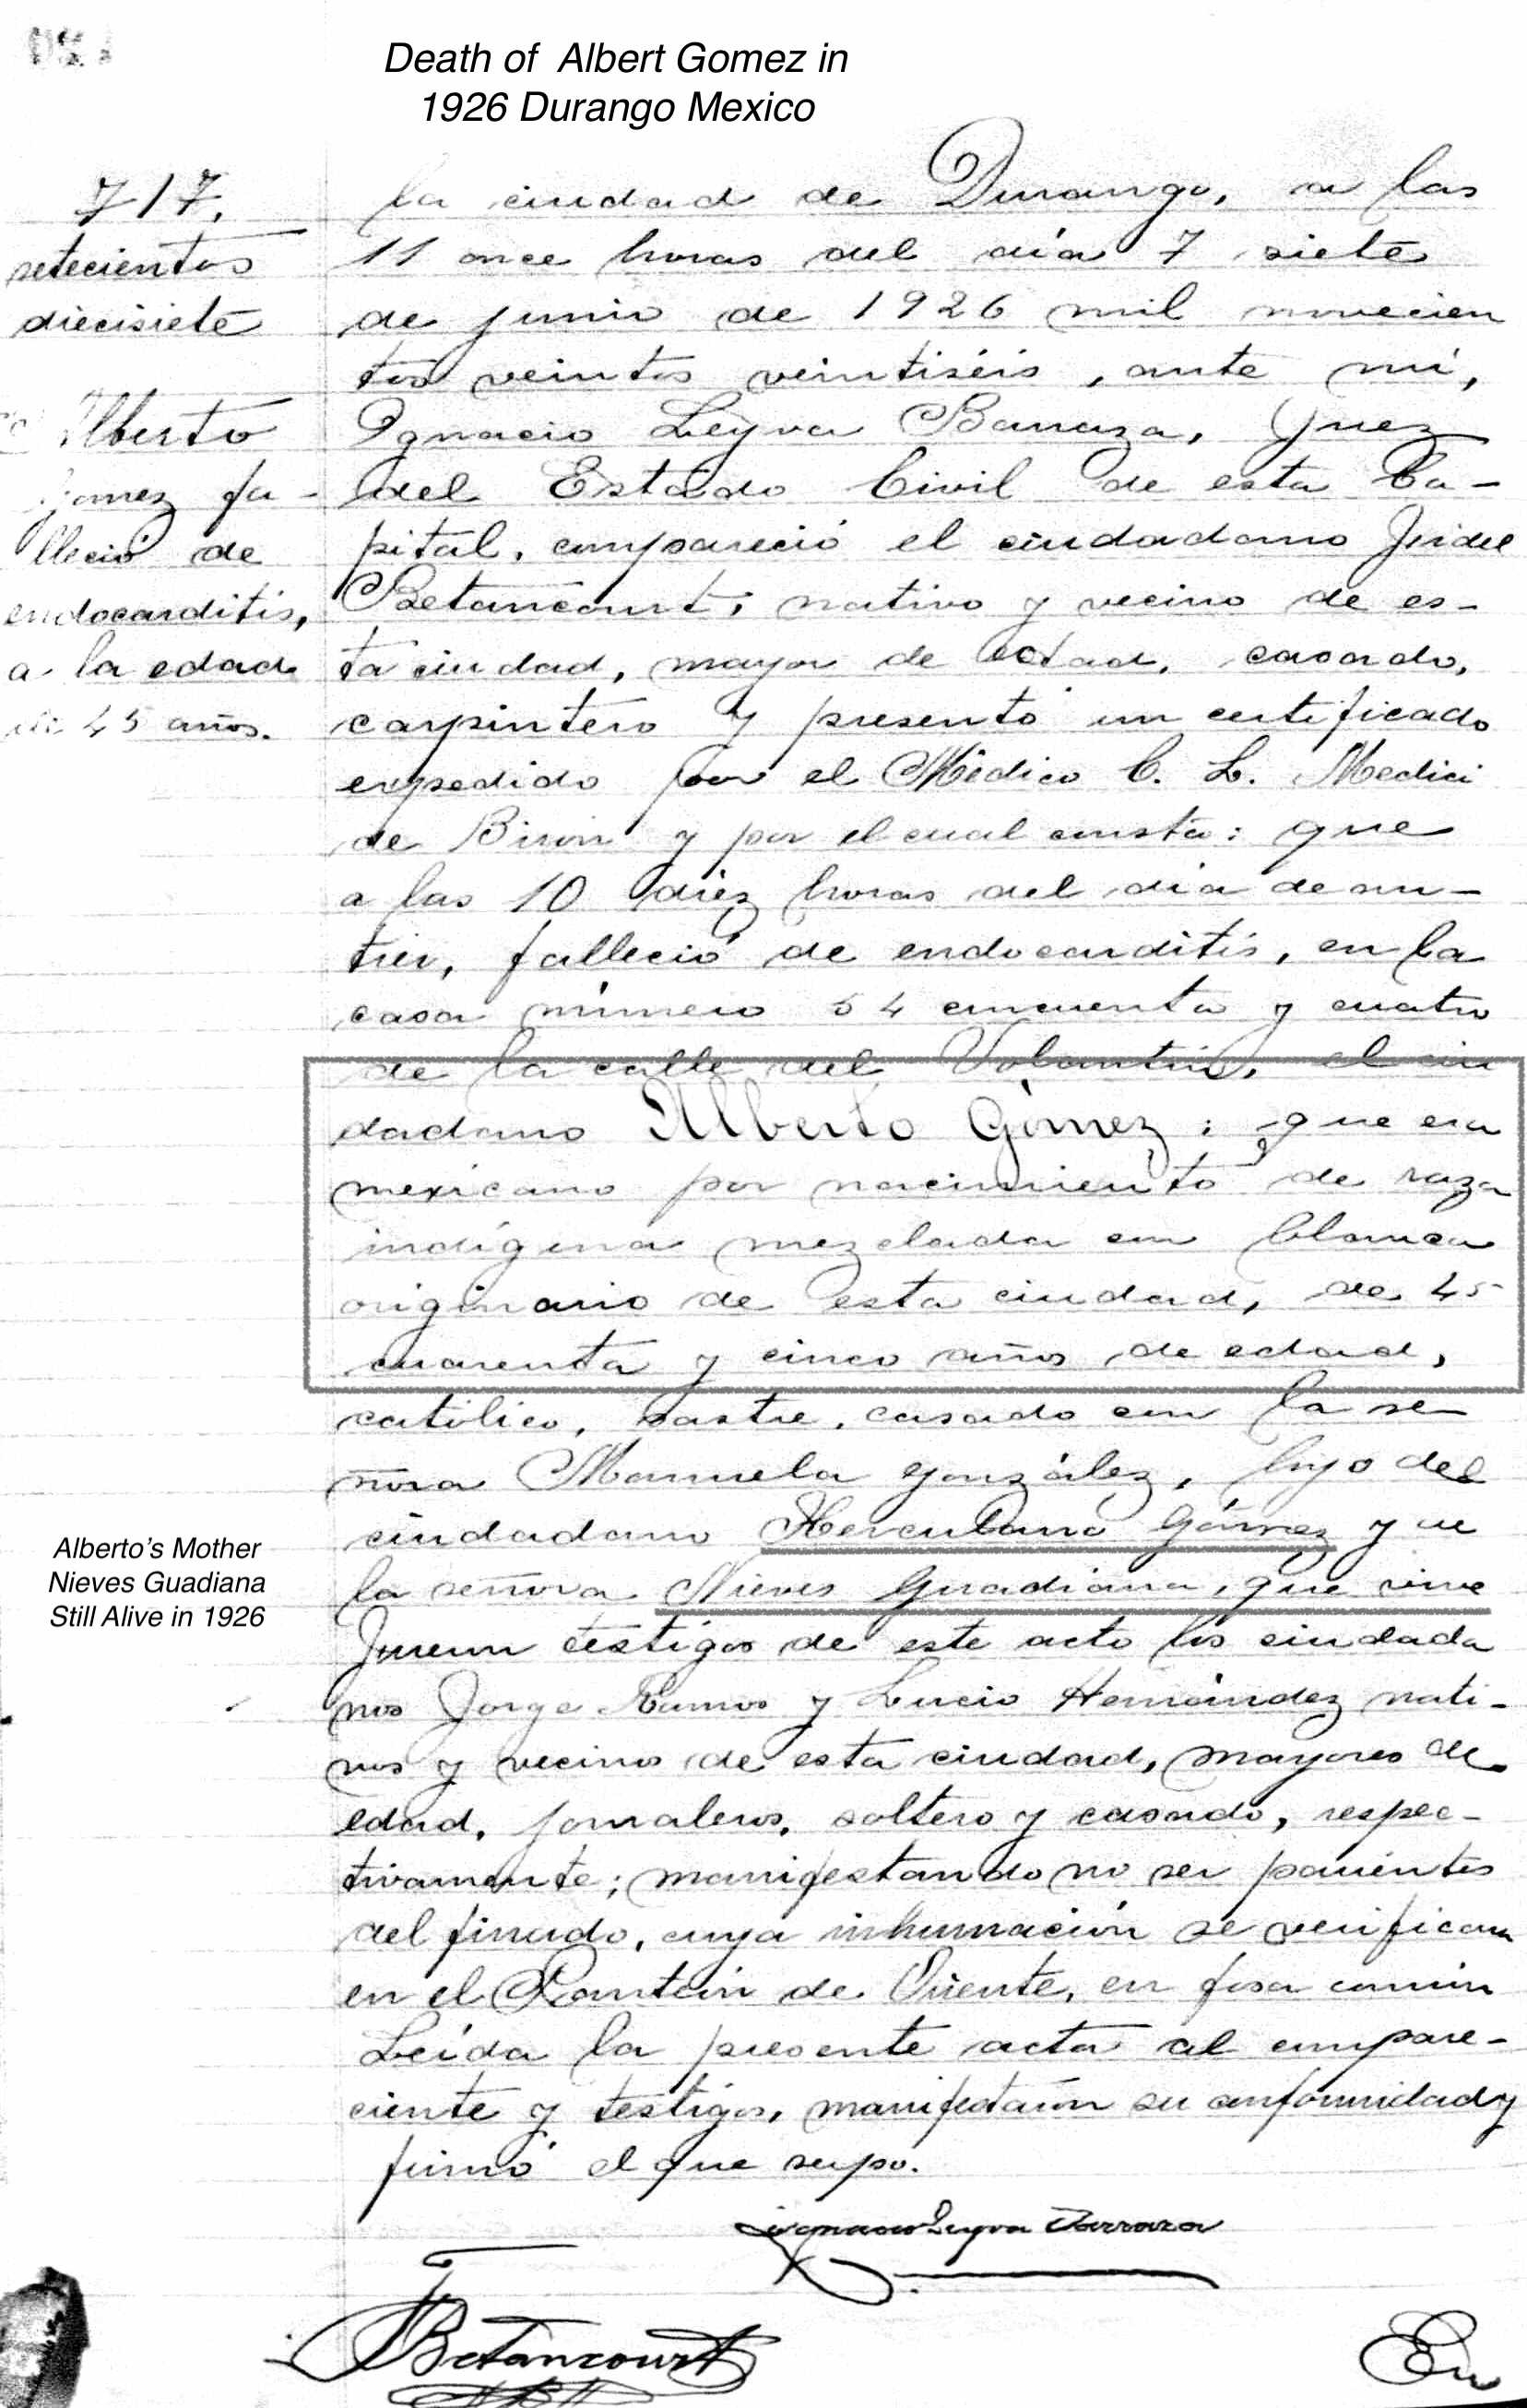 Death of Albert Gomez in
1926 Durango Mexico
717.
setecientos
diecisiete
Alberto
Gomez fa-
lleció de
endocarditis,
a la edad
de 45 años.
la ciudad de Durango, a las
11 once horas del día 7 siete
de junio de 1926 mil novecien
tos veintos veintiséis, ante mí,
Ignacio Leyva Barraza, Juez
del Estado Civil de esta Ca-
pital, compareció el ciudadano
Betancourt, nativo y vecino de es-
ta ciudad, mayor de edad, casado,
carpintero y presentó un certificado
expedido por el Médico C. L. Medici
de y por el cual consta: que
a las 10 diez horas del día de an-
tier, falleció de endocarditis, en la
casa número 54 cincuenta y cuatro
de la calle del Volantín, el ciu
dadano Alberto Gómez; que era
mexicano por nacimiento de raza
indígena mezclada con blanca
originario de esta ciudad, de 45
cuarenta y cinco años de edad,
católico, sastre, casado con la se
ñora Manuela González, hijo del
ciudadano Herculano Gómez y de
la señora Nieves Guadiana, que vive
Alberto's Mother
Nieves Guadiana
Still Alive in 1926
Fueron testigos de este acto los ciudada
nos Jorge Ramos y Lucio Hernández nati-
vos y vecinos de esta ciudad, mayores de
edad, jornaleros, soltero y casado, respec-
tivamente; manifestando no ser parientes
del finado, cuya inhumación se verificara
en el Panteón de Oriente, en fosa común
Leída la presente acta al compare-
ciente y testigos, manifestaron su conformidad y
firmó el que supo.
Ignacio Leyva Barraza
Betancourt
En